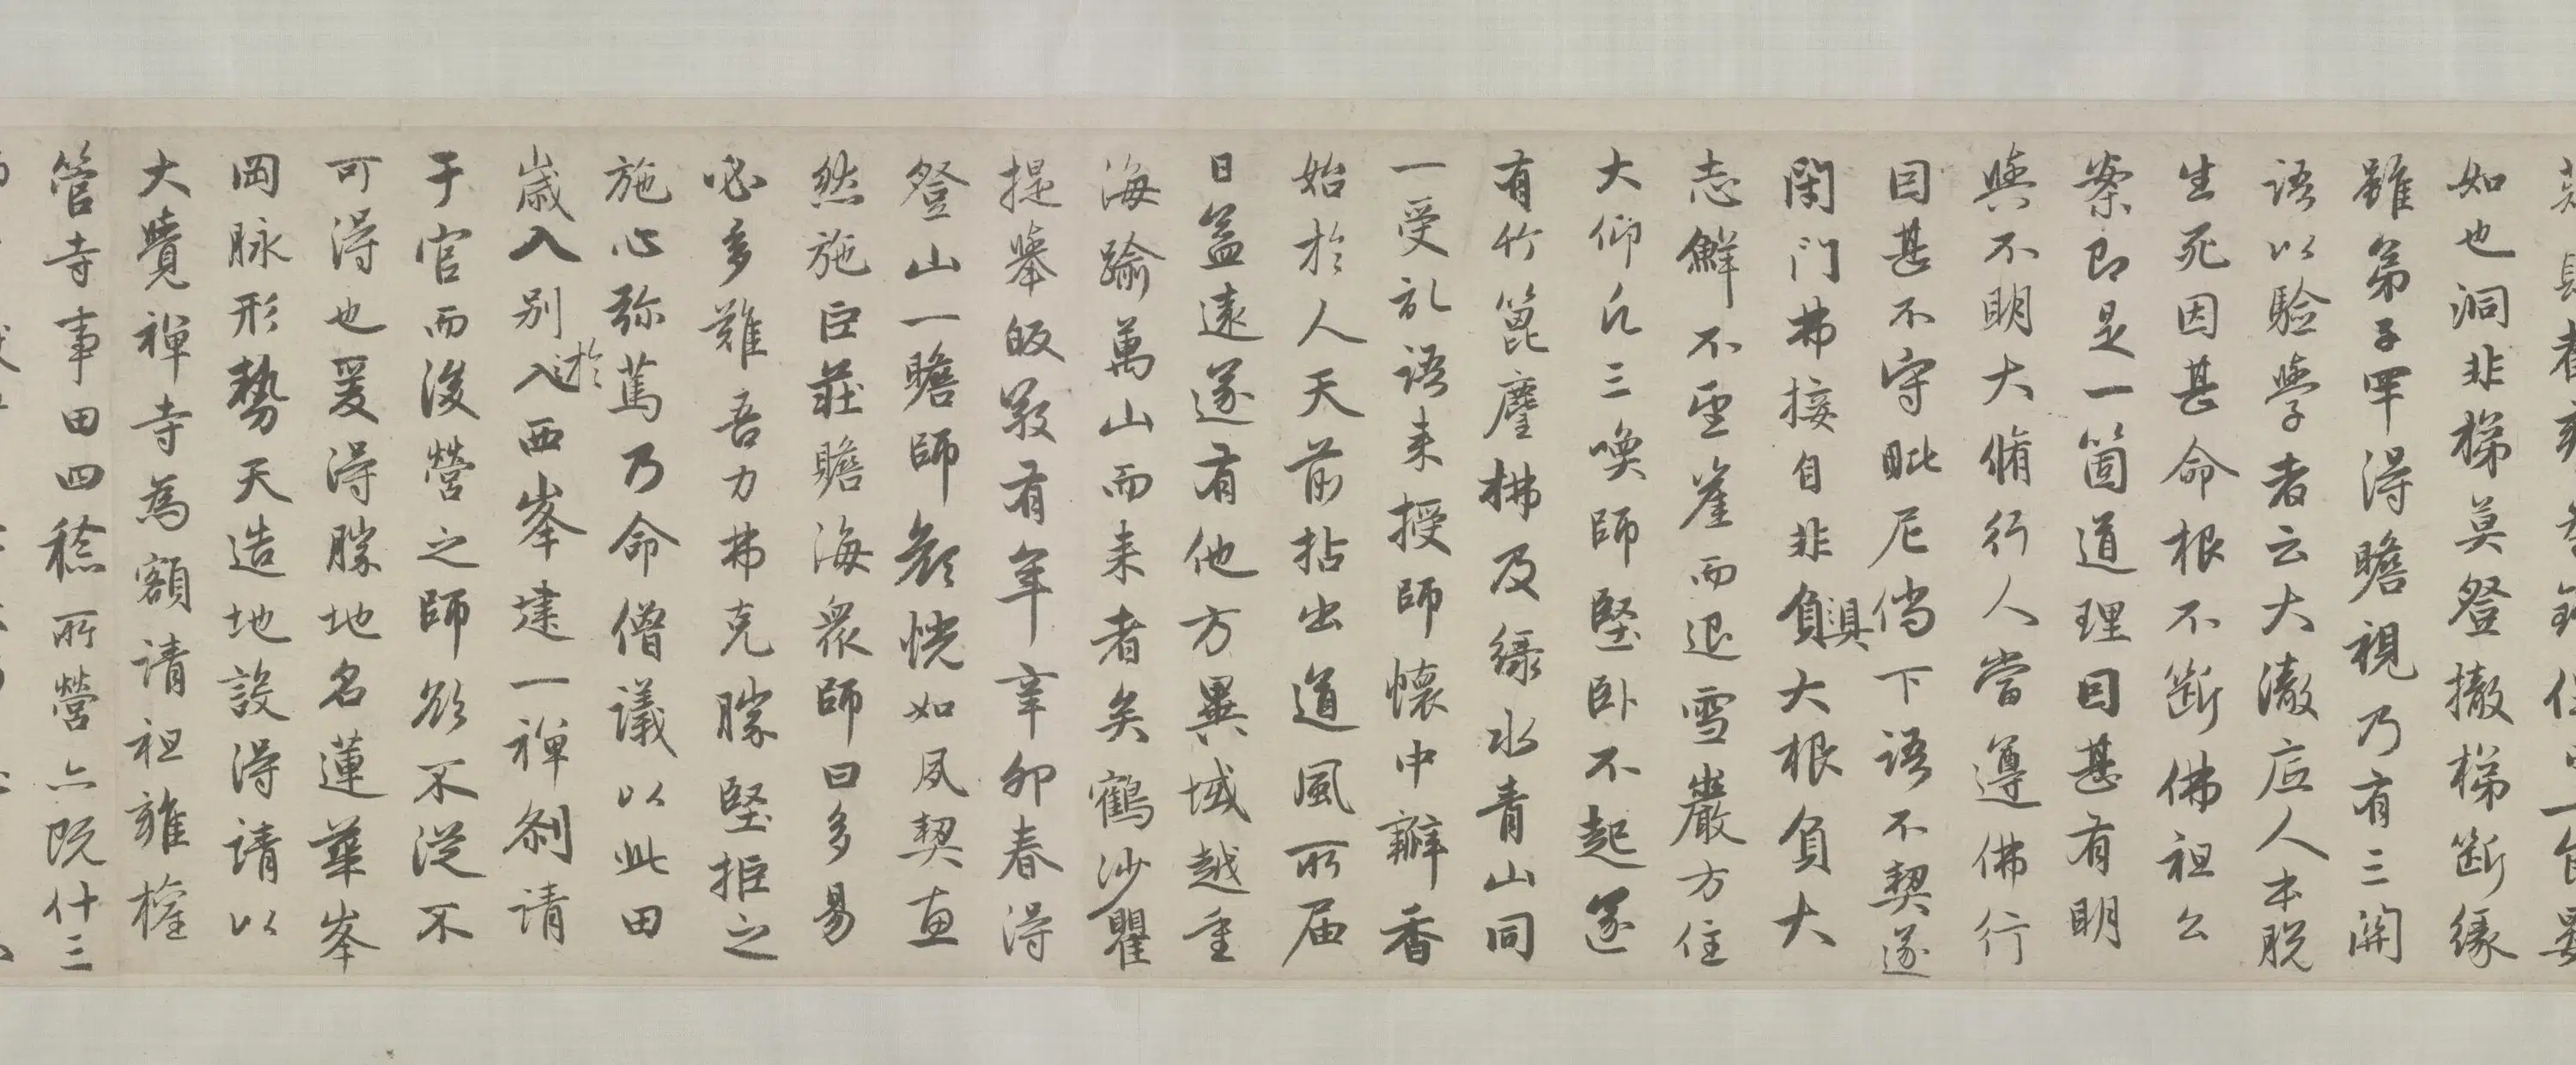 如也洞非梯莫登撤梯斷緣
雖弟子罕得瞻視乃有三關
語以驗學者云大澈底人本脫
生死因甚命根不斷佛祖公
案即是一箇道理因甚有明
與不明大脩行人當遵佛行
因甚不守毗尼倘下語不契遂
閑門弗接自非具大根負大
志鮮不望崖而退雪巖方住
大仰凡三喚師堅卧不起遂
有竹篦麈拂及綠水青山同
一受記語来授師懷中瓣香
始於人天前拈出道風所届
日益遠遂有他方異域越重
海踰萬山而来者矣鶴沙瞿
提舉皈敬有年辛卯春得
登山一瞻師顔恍如夙契惠
然施巨莊贍海衆師曰多易
必多難吾力弗克勝堅拒之
施心弥篤乃命僧議以此田
歲入別於西峯建一禪刹請
于官而後營之師欲不從不
可得也爰得勝地名蓮華峯
岡脉形勢天造地設得請以
大覺禪寺為額請祖雍權
管寺事田四稔所營亦既什三